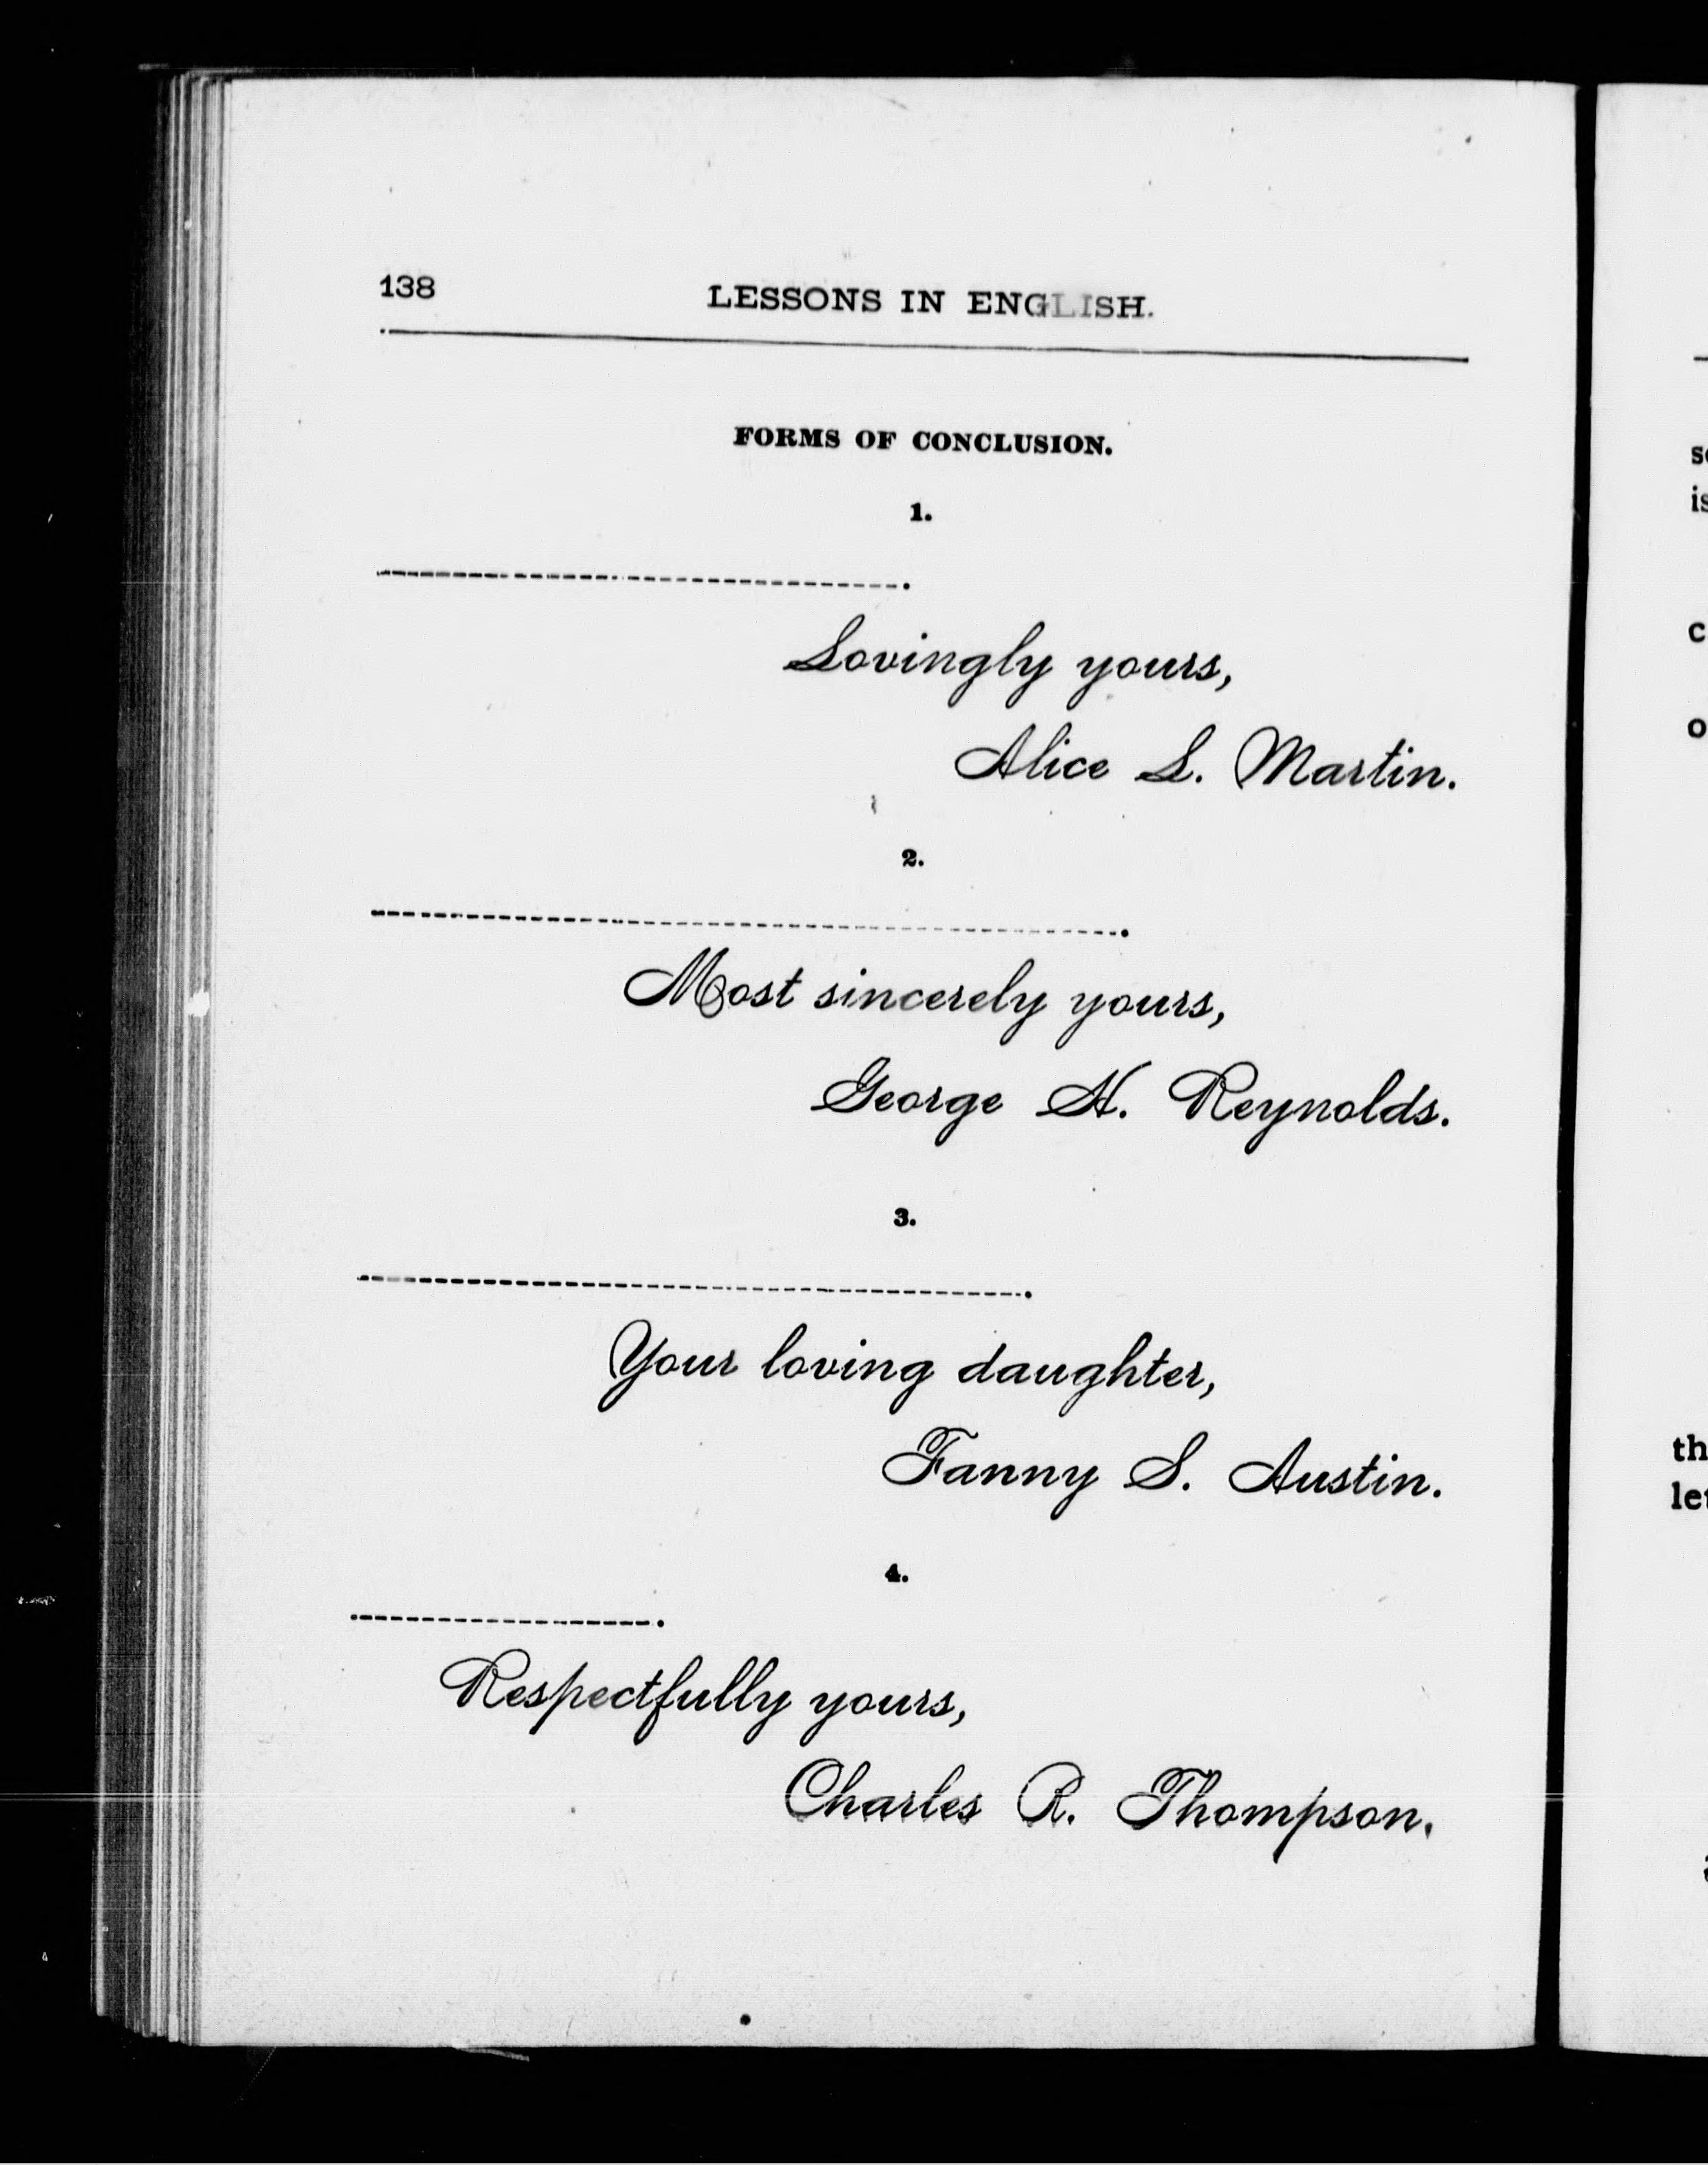 138 LESSONS IN ENGLISH.
FORMS OF CONCLUSION.
1.
Lovingly yours,
Alice L. Martin.
2.
Most sincerely yours,
George H. Reynolds.
3.
Your loving daughter,
Fanny S. Austin.
4.
Respectfully yours,
Charles R. Thompson.